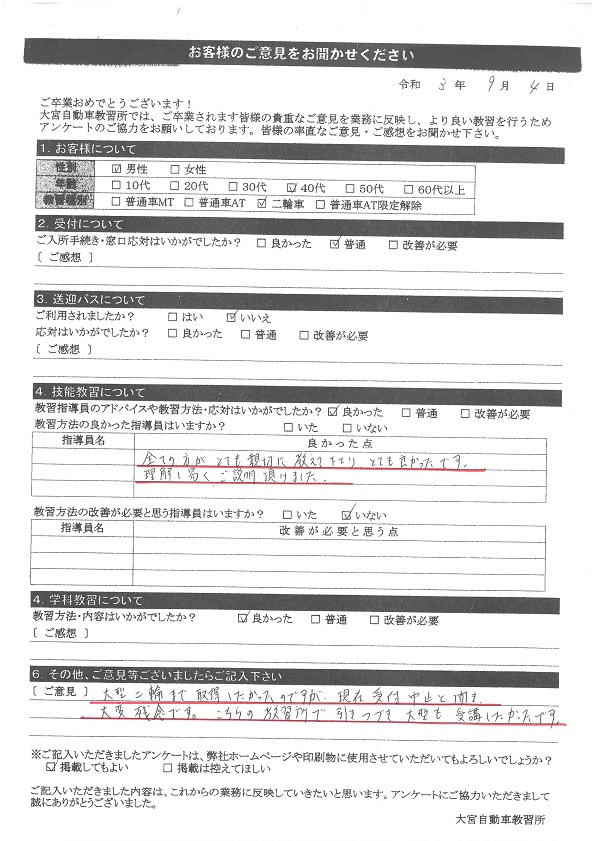 お客様のご意見をお聞かせください
令和 3 年 9 月 4 日
ご卒業おめでとうございます！
大宮自動車教習所では、ご卒業されます皆様の貴重なご意見を業務に反映し、より良い教習を行うため
アンケートのご協力をお願いしております。皆様の率直なご意見・ご感想をお聞かせ下さい。
1. お客様について
性別 ☑男性 □女性
年齢 □10代 □20代 □30代 ☑40代 □50代 □60代以上
教習種別 □普通車MT □普通車AT ☑二輪車 □普通車AT限定解除
2. 受付について
ご入所手続き・窓口応対はいかがでしたか？ □良かった ☑普通 □改善が必要
［ ご感想 ］
3. 送迎バスについて
ご利用されましたか？ □はい ☑いいえ
応対はいかがでしたか？ □良かった □普通 □改善が必要
［ ご感想 ］
4. 技能教習について
教習指導員のアドバイスや教習方法・応対はいかがでしたか？ ☑良かった □普通 □改善が必要
教習方法の良かった指導員はいますか？ □いた □いない
指導員名 良かった点
全ての方がとても親切に教えて下さり とても良かったです。
理解し易く ご説明頂けました。
教習方法の改善が必要と思う指導員はいますか？ □いた ☑いない
指導員名 改善が必要と思う点
4. 学科教習について
教習方法・内容はいかがでしたか？ ☑良かった □普通 □改善が必要
［ ご感想 ］
6. その他、ご意見等ございましたらご記入下さい
［ ご意見 ］ 大型二輪まで取得したかったのですが、現在受付中止と聞き、
大変残念です。こちらの教習所で引きつづき大型も受講したかったです。
※ご記入いただきましたアンケートは、弊社ホームページや印刷物に使用させていただいてもよろしいでしょうか？
☑掲載してもよい □掲載は控えてほしい
ご記入いただきました内容は、これからの業務に反映していきたいと思います。アンケートにご協力いただきまして
誠にありがとうございました。
大宮自動車教習所